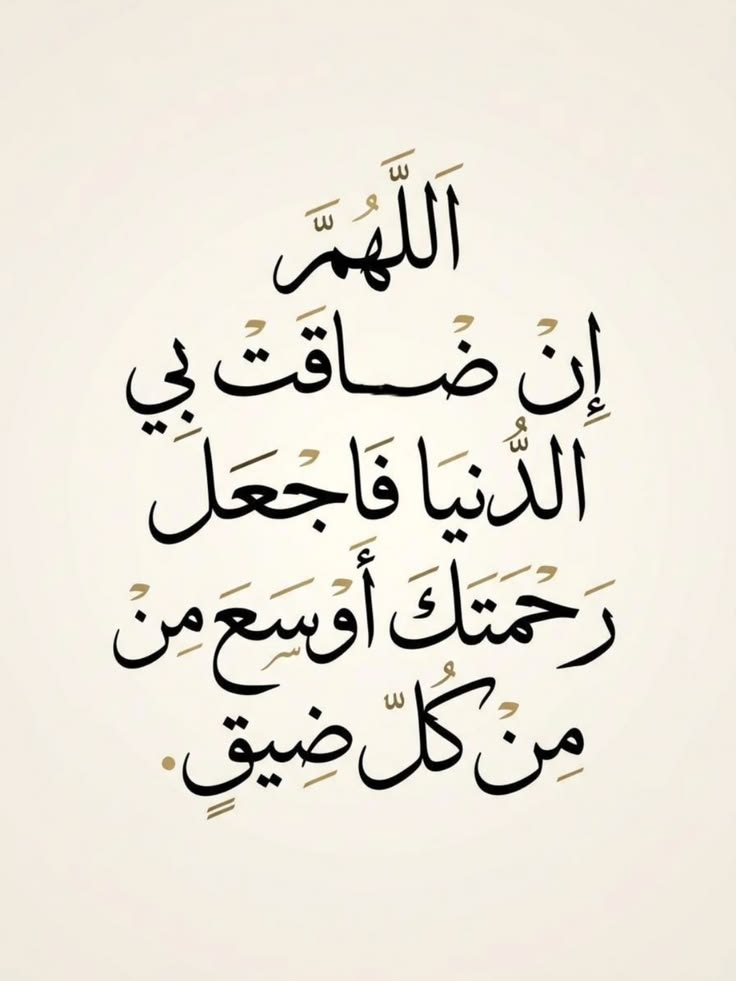 اَللَّهُمَّ
إِنْ ضْاقَتْ بِي
الدُّنيَا فَاجْعَل
رَحْمَتَكَ أَوْسَعَ مِنْ
مِنْ كُلّ ضِيقٍ.